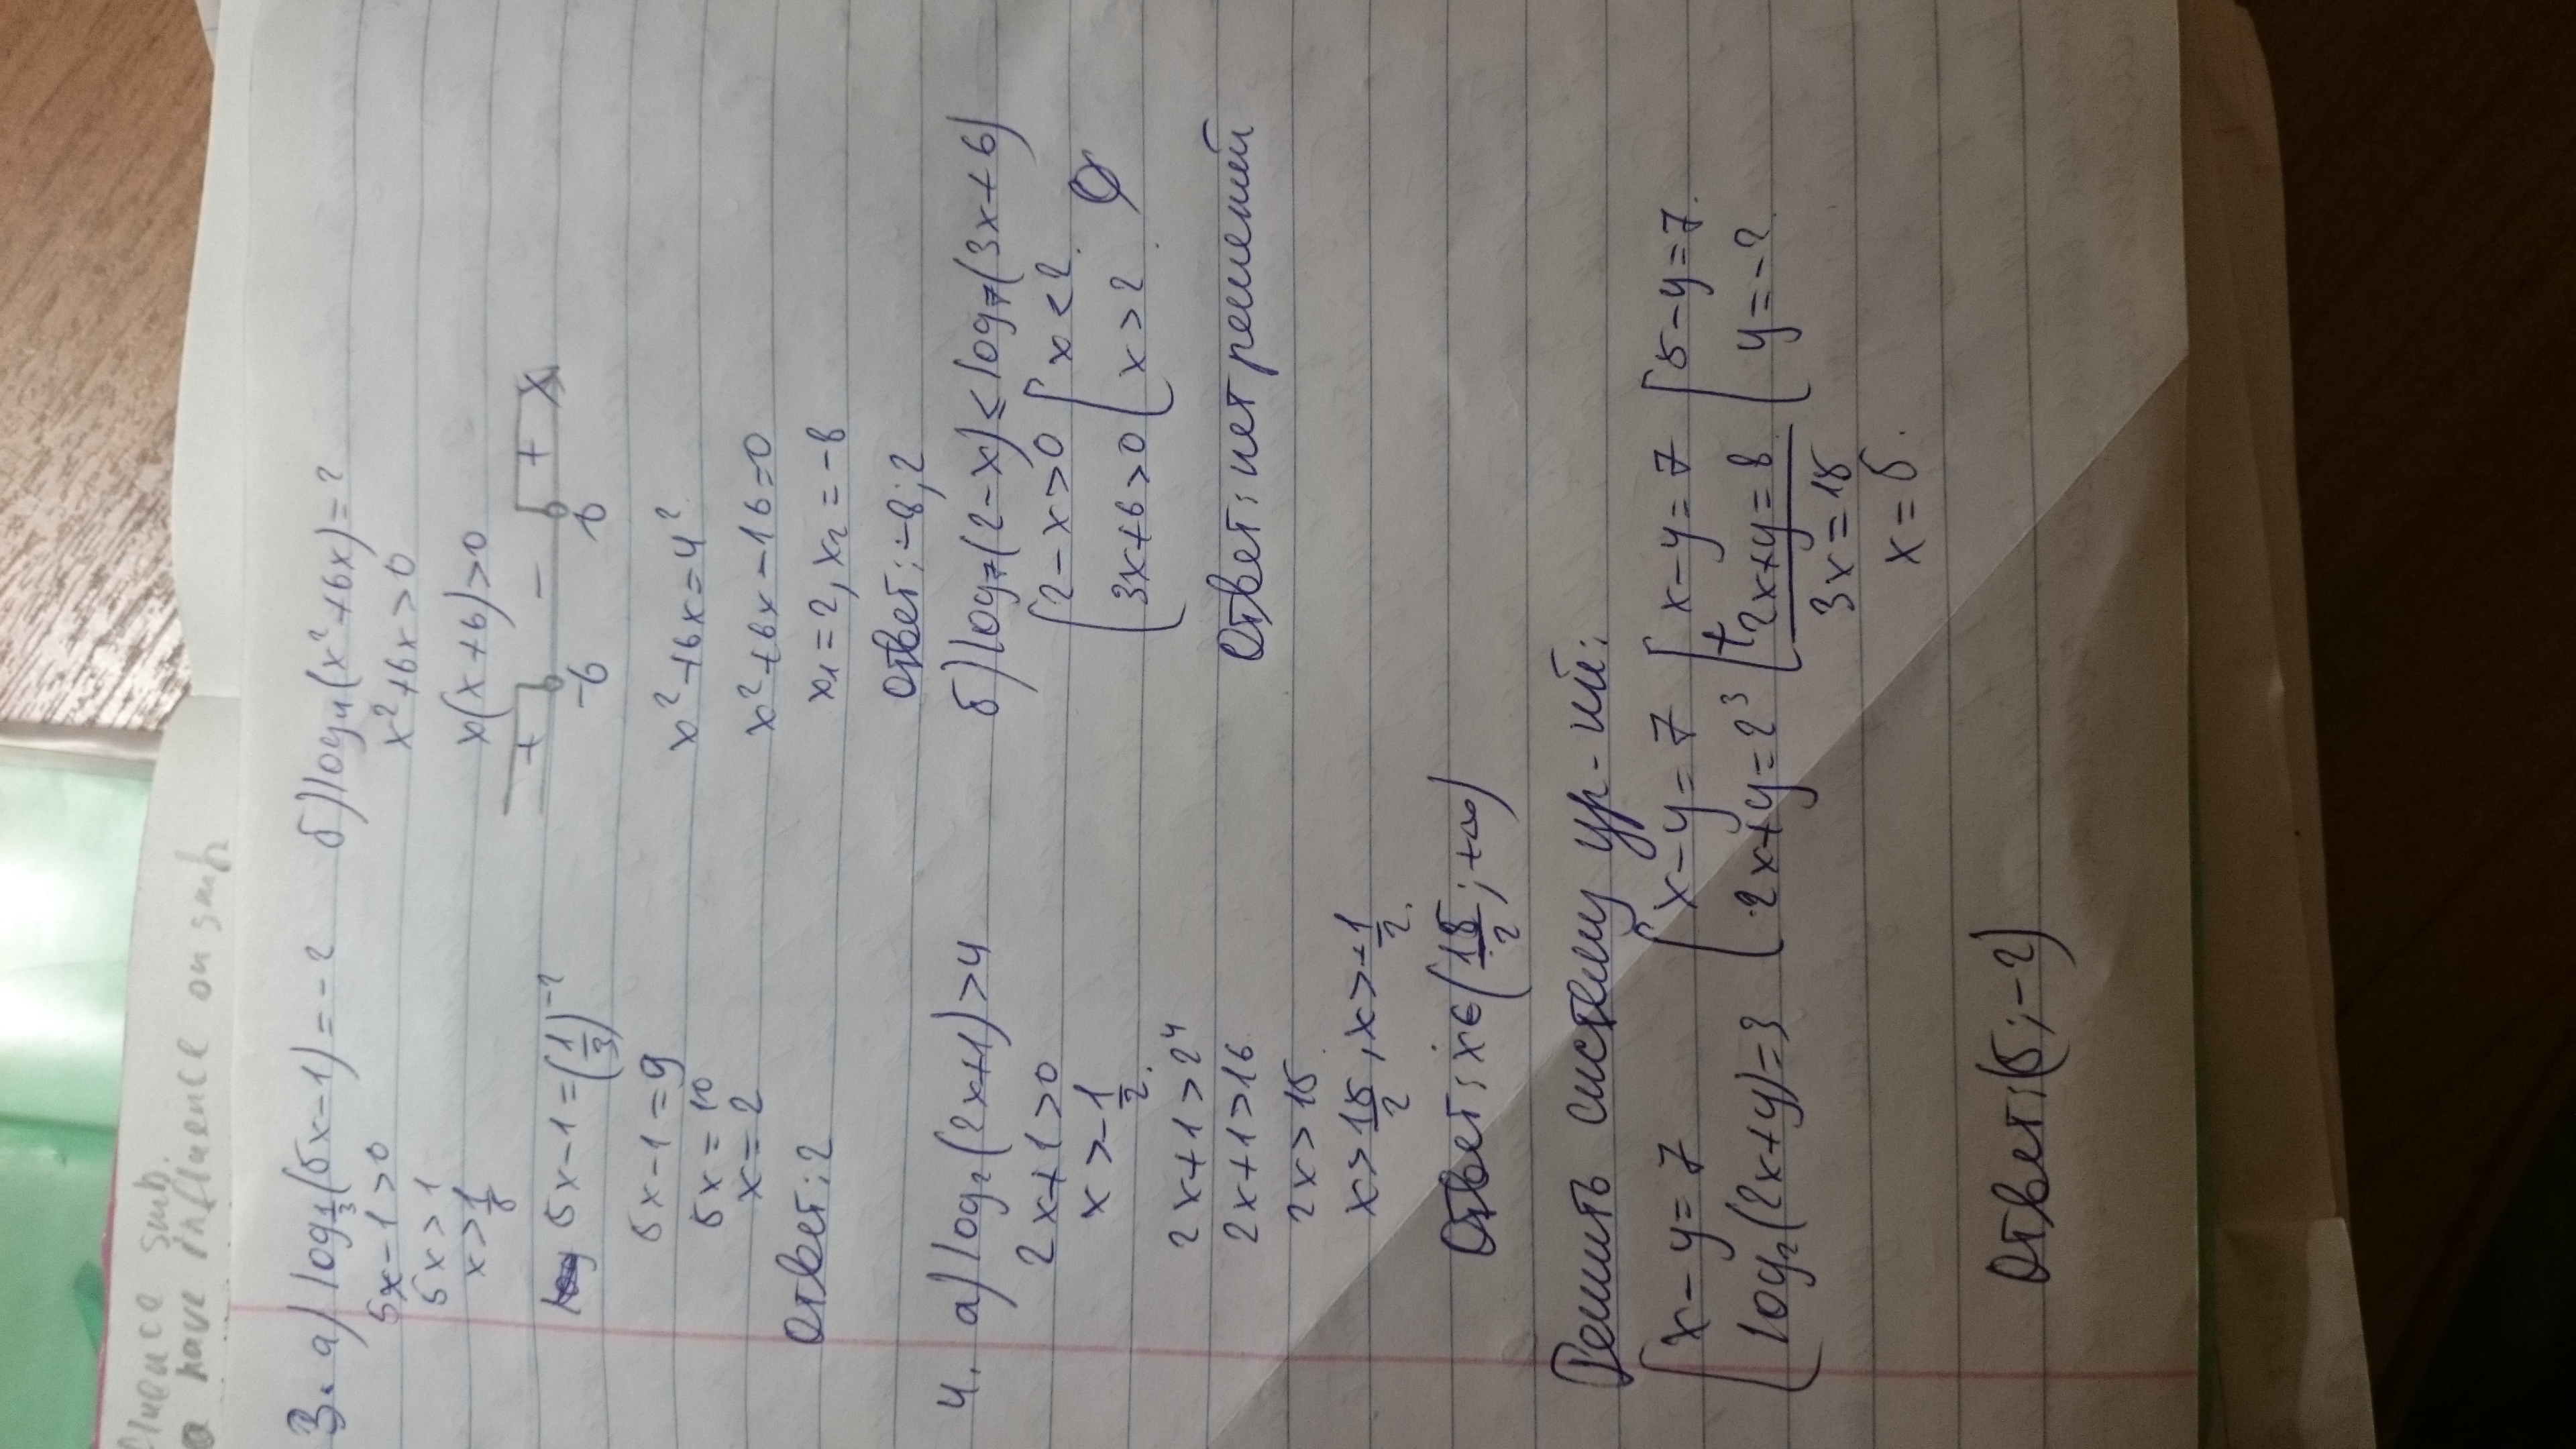 fluence smb.
have influence on smb
3. а) log₁/₃(5x-1)=-2
5x-1>0
5x>1
x>1/5
5x-1=(1/3)⁻²
5x-1=9
5x=10
x=2
Ответ: 2
б) log₄(x²+6x)=2
x²+6x>0
x(x+6)>0
+ - + x
-6 0
x²+6x=4²
x²+6x-16=0
x₁=2, x₂=-8
Ответ: -8; 2
4. а) log₂(2x+1)>4
2x+1>0
x>-1/2.
2x+1>2⁴
2x+1>16
2x>15
x>15/2, x>-1/2.
Ответ: x∈(15/2; +∞)
б) log₇(2-x)≤log₇(3x+6)
{2-x>0 {x<2
{3x+6>0 {x>2 ∅
Ответ: нет решений
Решить систему ур-ий:
{x-y=7 {x-y=7 {x-y=7 {5-y=7
{log₂(2x+y)=3 {2x+y=2³ {+2x+y=8 {y=-2
3x=15
x=5.
Ответ: (5; -2)